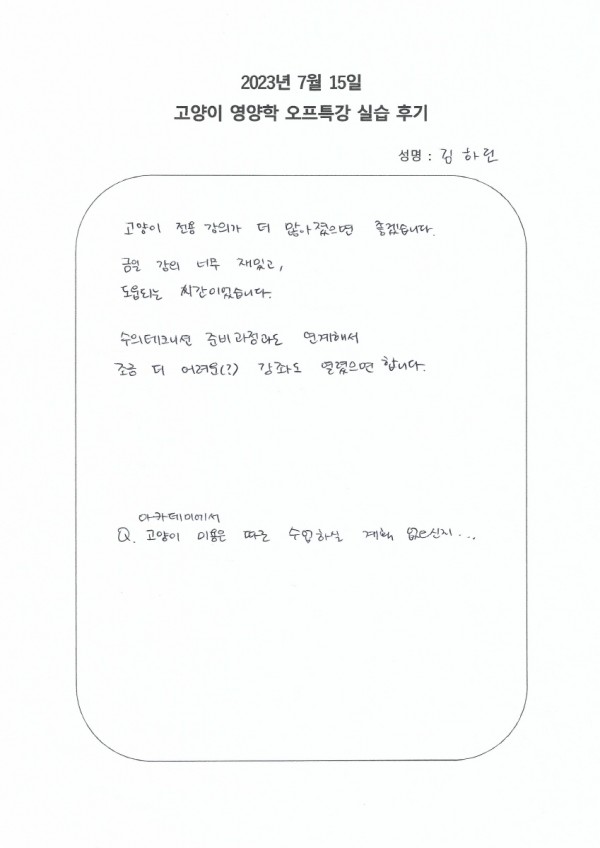 2023년 7월 15일
고양이 영양학 오프특강 실습 후기
성명 : 김하련
고양이 전용 강의가 더 많아졌으면 좋겠습니다.
금일 강의 너무 재밌고,
도움되는 시간이었습니다.
수의테크니션 준비과정과도 연계해서
조금 더 어려운(?) 강좌도 열렸으면 합니다.
아카데미에서
Q. 고양이 미용은 따로 수업하실 계획 없으신지...